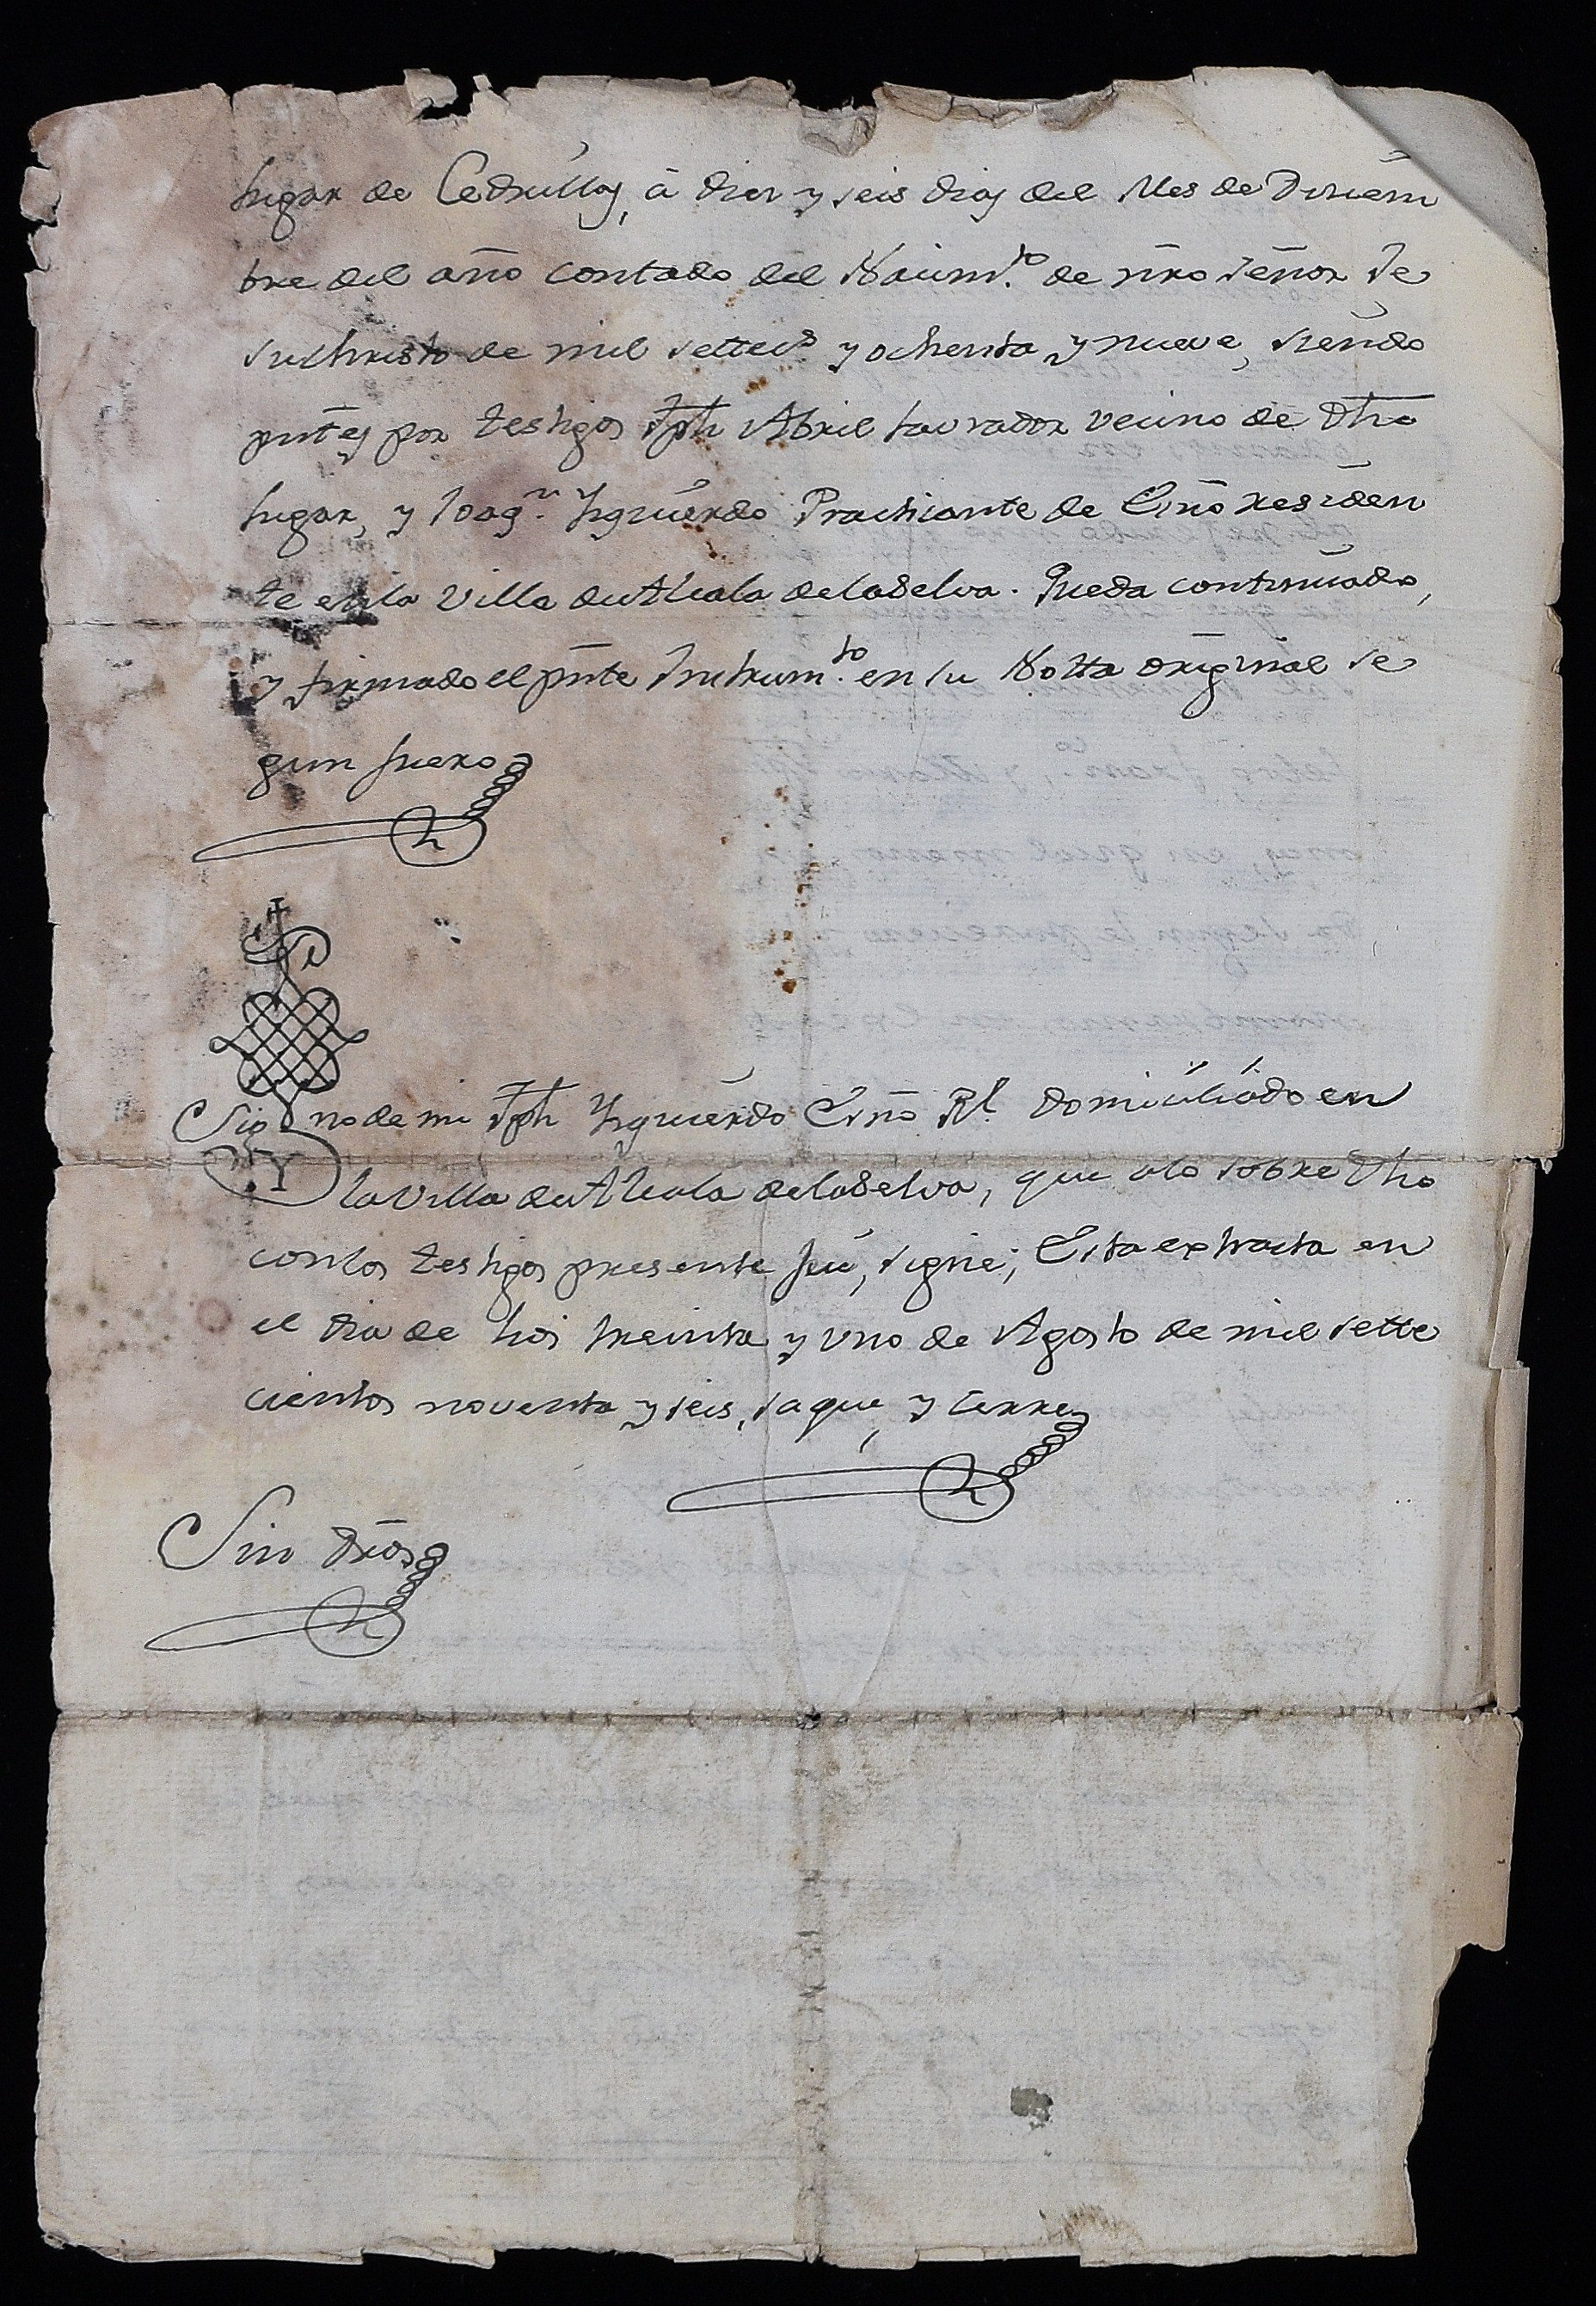 lugar de Cedrillas, à diez y seis dias del Mes de Diciem
bre del año contado del Nacim.to de nro Señor Je
suchristo de mil settec.s y ochenta y nueve, siendo
pntes por testigos Jph Abril Lavrador vecino de dho
lugar, y Joaq.n Yzquierdo Practicante de Essno residen
te en la Villa de Alcala de la Selva. Queda continuado,
y firmado el pnte Instrum.to en su Notta original se
gun fuero
Sig no de mi Jph Yzquierdo Essno Rl. domiciliado en
Y la Villa de Alcala de la Selva, que a lo sobre dho
con los testigos presente fui, signé; Esta extracta en
el dia de hoi treinta y uno de Agosto de mil sette
cientos noventa y seis, saquè, y cerre
Sin dros